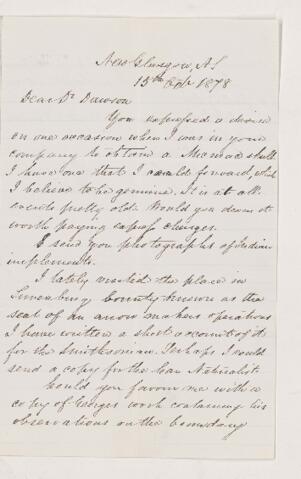 New Glasgow, N.S
15th Sept 1878
Dear Dr Dawson
You expressed a desire
on one occasion when I was in your
company to obtain a Micmac skull
I have one that I could forward, which
I believe to be genuine. It is at all
events pretty old. Would you deem it
worth paying express charges.
I send you photographs of Indian
implements.
I lately visited the place in
Lunenburg County known as the
seat of an arrow makers operations
I have written a short account of it
for the Smithsonian. Perhaps I could
send a copy for the Can Naturalist.
Could you favour me with a
copy of Georges work containing his
observations on the boundary